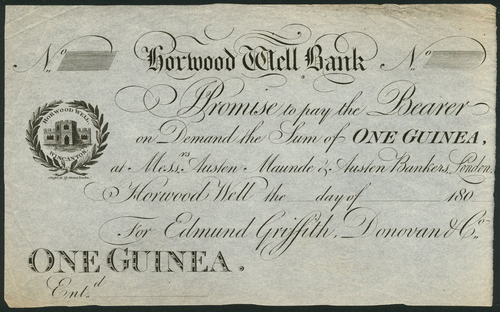 No No
Horwood Well Bank
HORWOOD WELL
WINCANTON
I Promise to pay the Bearer
on Demand the Sum of ONE GUINEA,
at Messrs. Austen Maunde & Austen Bankers, London.
Horwood Well the day of 180
For Edmund Griffith, Donovan & Co.
ONE GUINEA.
Entd.